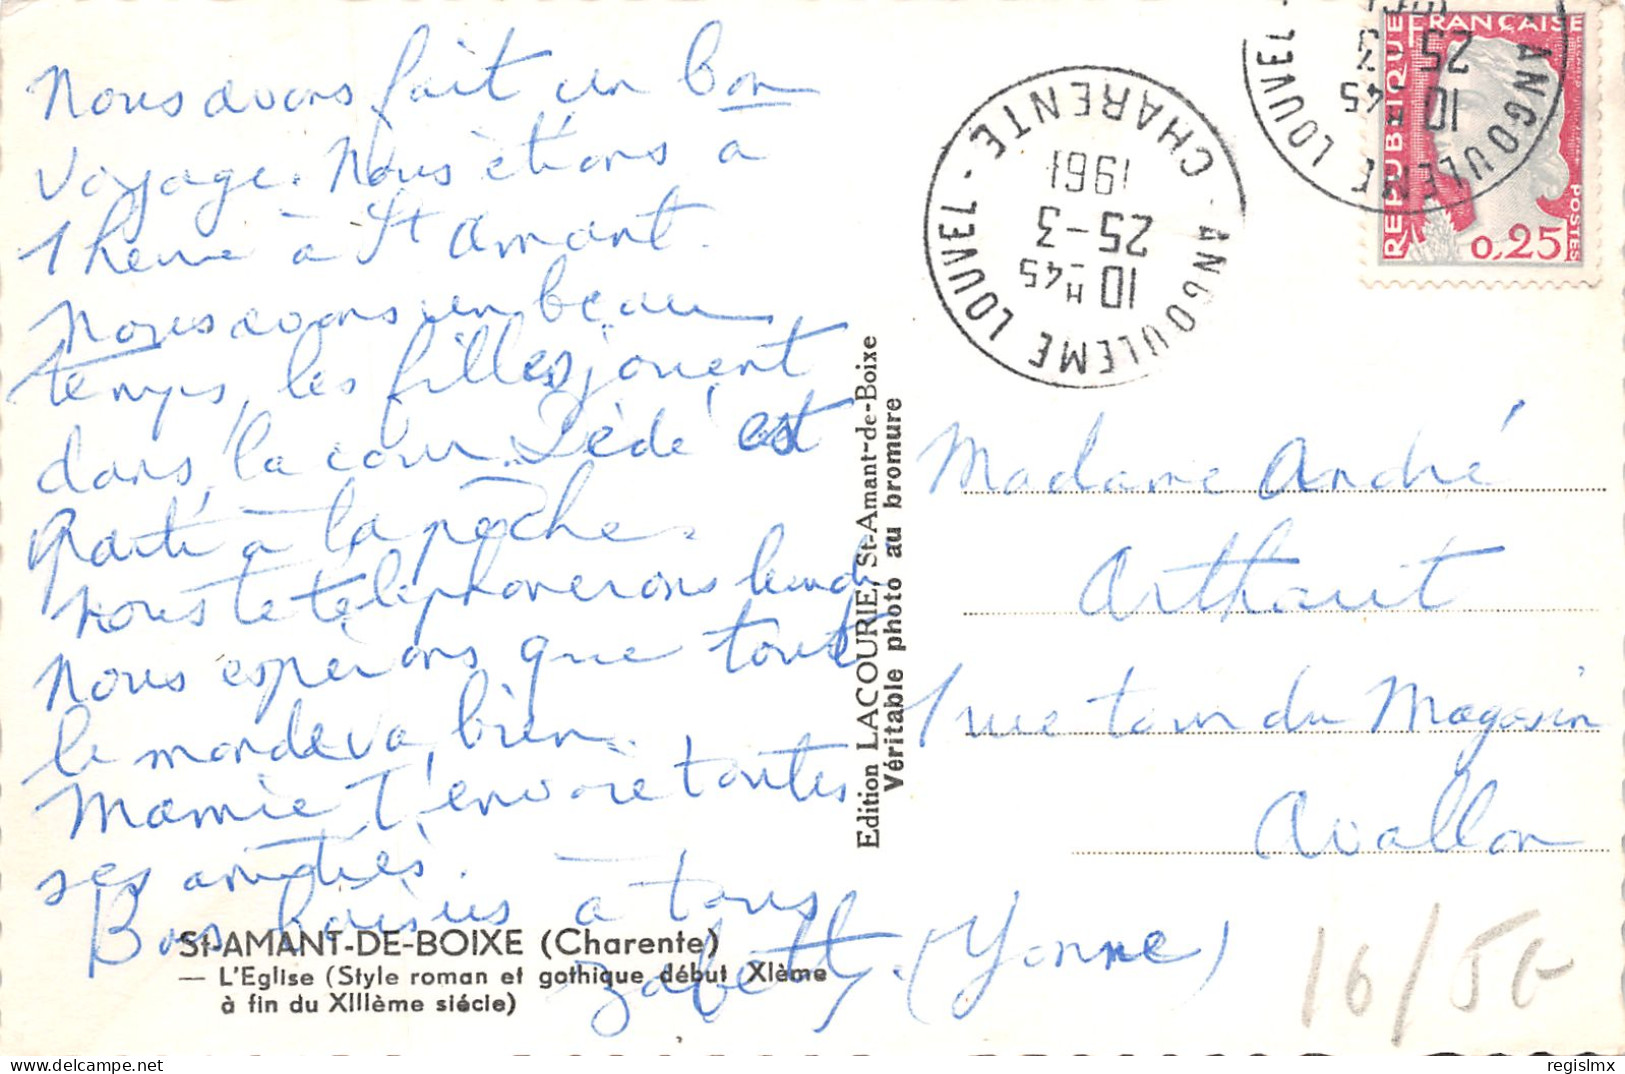 Nous avons fait un bon
voyage. Nous étions à
1 heure à St Amant.
Nous avons un beau
temps, les filles jouent
dans la cour Dédé est
parti à la pêche.
Nous te téléphonerons lundi
Nous espérons que tout
le monde va bien.
Mamie t'envoie toutes
ses amitiés.
Bons baisers à tous
St-AMANT-DE-BOIXE (Charente)
— L'Eglise (Style roman et gothique début XIème
à fin du XIIIème siécle)
Edition LACOURIE, St-Amant-de-Boixe
Véritable photo au bromure
ANGOULEME LOUVEL - CHARENTE -
10 H 45
25 - 3
1961
ANGOULEME LOUVEL -
10 H 45
25 - 3
1961
REPUBLIQUE FRANÇAISE
POSTES
0,25
Madame André
Arthaut
1 rue tour du Magasin
Avallon
(Yonne)
16/5G
regislmx